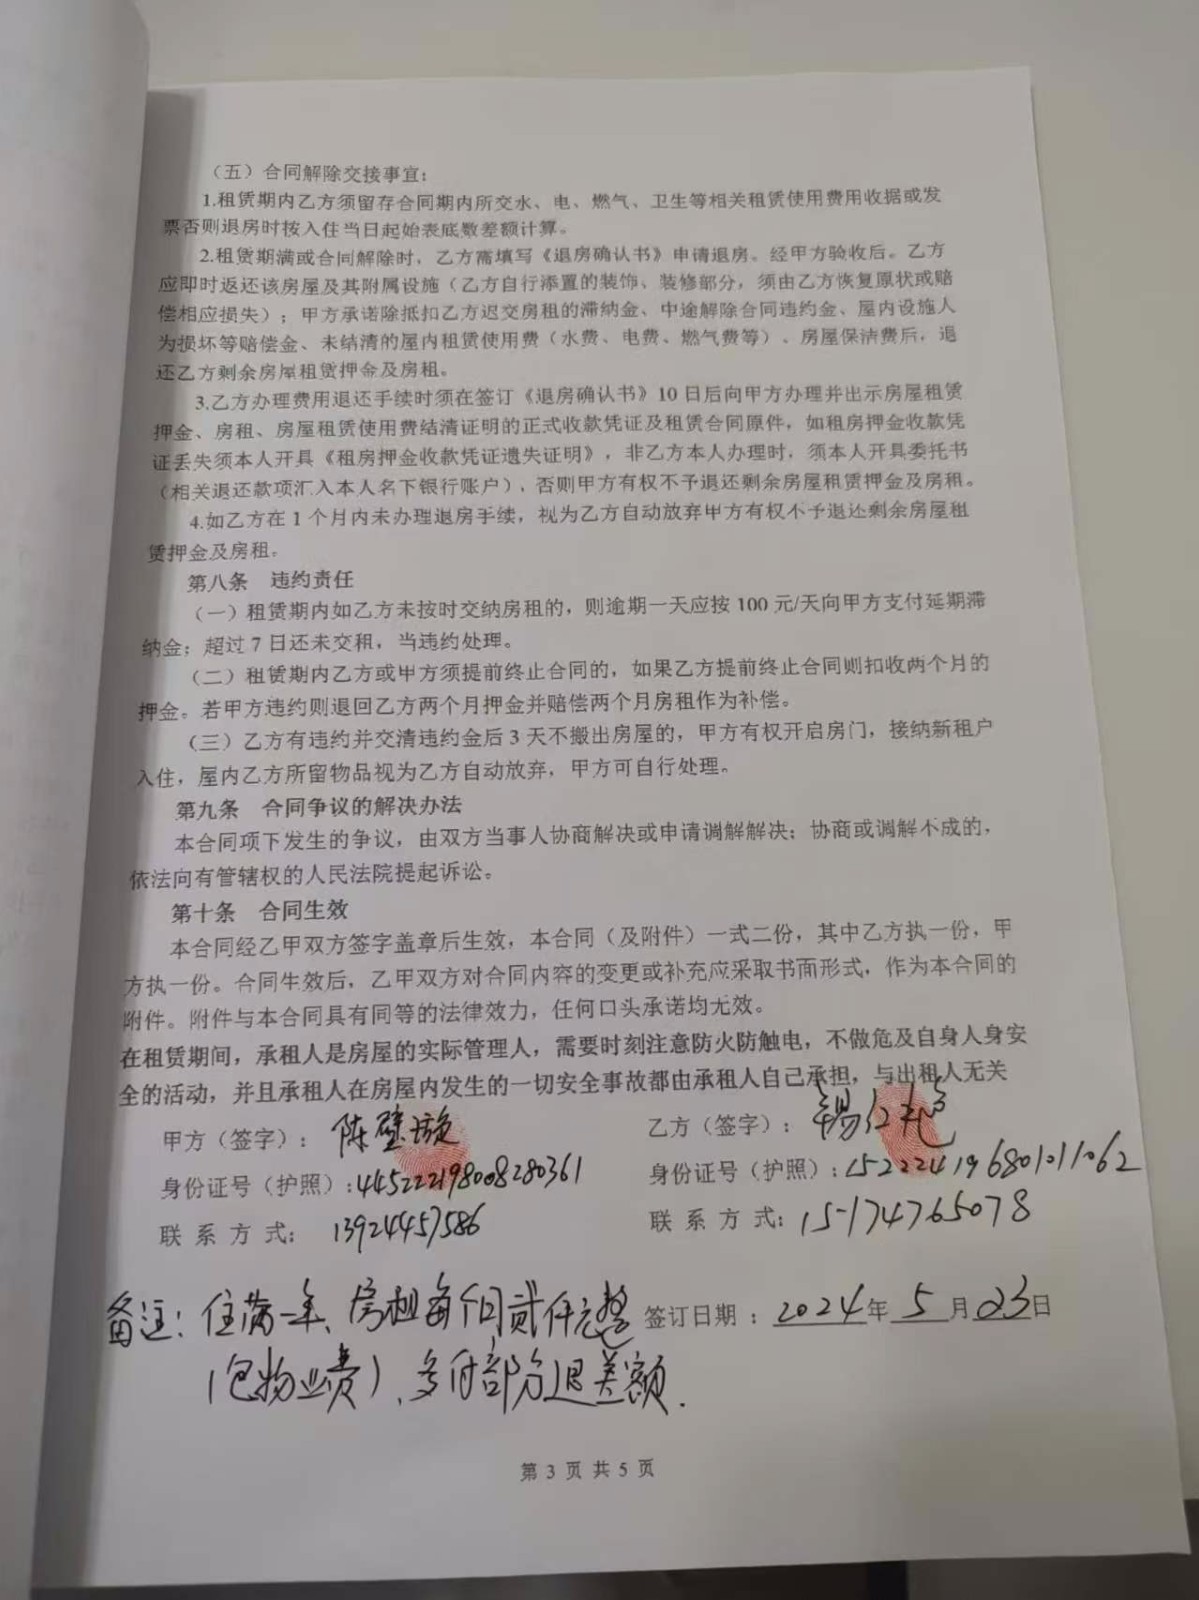 （五）合同解除交接事宜：
1.租赁期内乙方须留存合同期内所交水、电、燃气、卫生等相关租赁使用费用收据或发
票否则退房时按入住当日起始表底数差额计算。
2.租赁期满或合同解除时，乙方需填写《退房确认书》申请退房。经甲方验收后。乙方
应即时返还该房屋及其附属设施（乙方自行添置的装饰、装修部分，须由乙方恢复原状或赔
偿相应损失）；甲方承诺除抵扣乙方迟交房租的滞纳金、中途解除合同违约金、屋内设施人
为损坏等赔偿金、未结清的屋内租赁使用费（水费、电费、燃气费等）、房屋保洁费后，退
还乙方剩余房屋租赁押金及房租。
3.乙方办理费用退还手续时须在签订《退房确认书》10 日后向甲方办理并出示房屋租赁
押金、房租、房屋租赁使用费结清证明的正式收款凭证及租赁合同原件，如租房押金收款凭
证丢失须本人开具《租房押金收款凭证遗失证明》，非乙方本人办理时，须本人开具委托书
（相关退还款项汇入本人名下银行账户），否则甲方有权不予退还剩余房屋租赁押金及房租。
4.如乙方在 1 个月内未办理退房手续，视为乙方自动放弃甲方有权不予退还剩余房屋租
赁押金及房租。
第八条 违约责任
（一）租赁期内如乙方未按时交纳房租的，则逾期一天应按 100 元/天向甲方支付延期滞
纳金；超过 7 日还未交租，当违约处理。
（二）租赁期内乙方或甲方须提前终止合同的，如果乙方提前终止合同则扣收两个月的
押金。若甲方违约则退回乙方两个月押金并赔偿两个月房租作为补偿。
（三）乙方有违约并交清违约金后 3 天不搬出房屋的，甲方有权开启房门，接纳新租户
入住，屋内乙方所留物品视为乙方自动放弃，甲方可自行处理。
第九条 合同争议的解决办法
本合同项下发生的争议，由双方当事人协商解决或申请调解解决；协商或调解不成的，
依法向有管辖权的人民法院提起诉讼。
第十条 合同生效
本合同经乙甲双方签字盖章后生效，本合同（及附件）一式二份，其中乙方执一份，甲
方执一份。合同生效后，乙甲双方对合同内容的变更或补充应采取书面形式，作为本合同的
附件。附件与本合同具有同等的法律效力，任何口头承诺均无效。
在租赁期间，承租人是房屋的实际管理人，需要时刻注意防火防触电，不做危及自身人身安
全的活动，并且承租人在房屋内发生的一切安全事故都由承租人自己承担，与出租人无关
甲方（签字）：陈璧璇 乙方（签字）：
身份证号（护照）:445222198008280361 身份证号（护照）:152224196801011062
联 系 方 式：13924457586 联 系 方 式：15174765078
备注：住满一年、房租每个月贰仟元整 签订日期：2024年5月23日
（包物业费）、多付部分退差额.
第 3 页 共 5 页